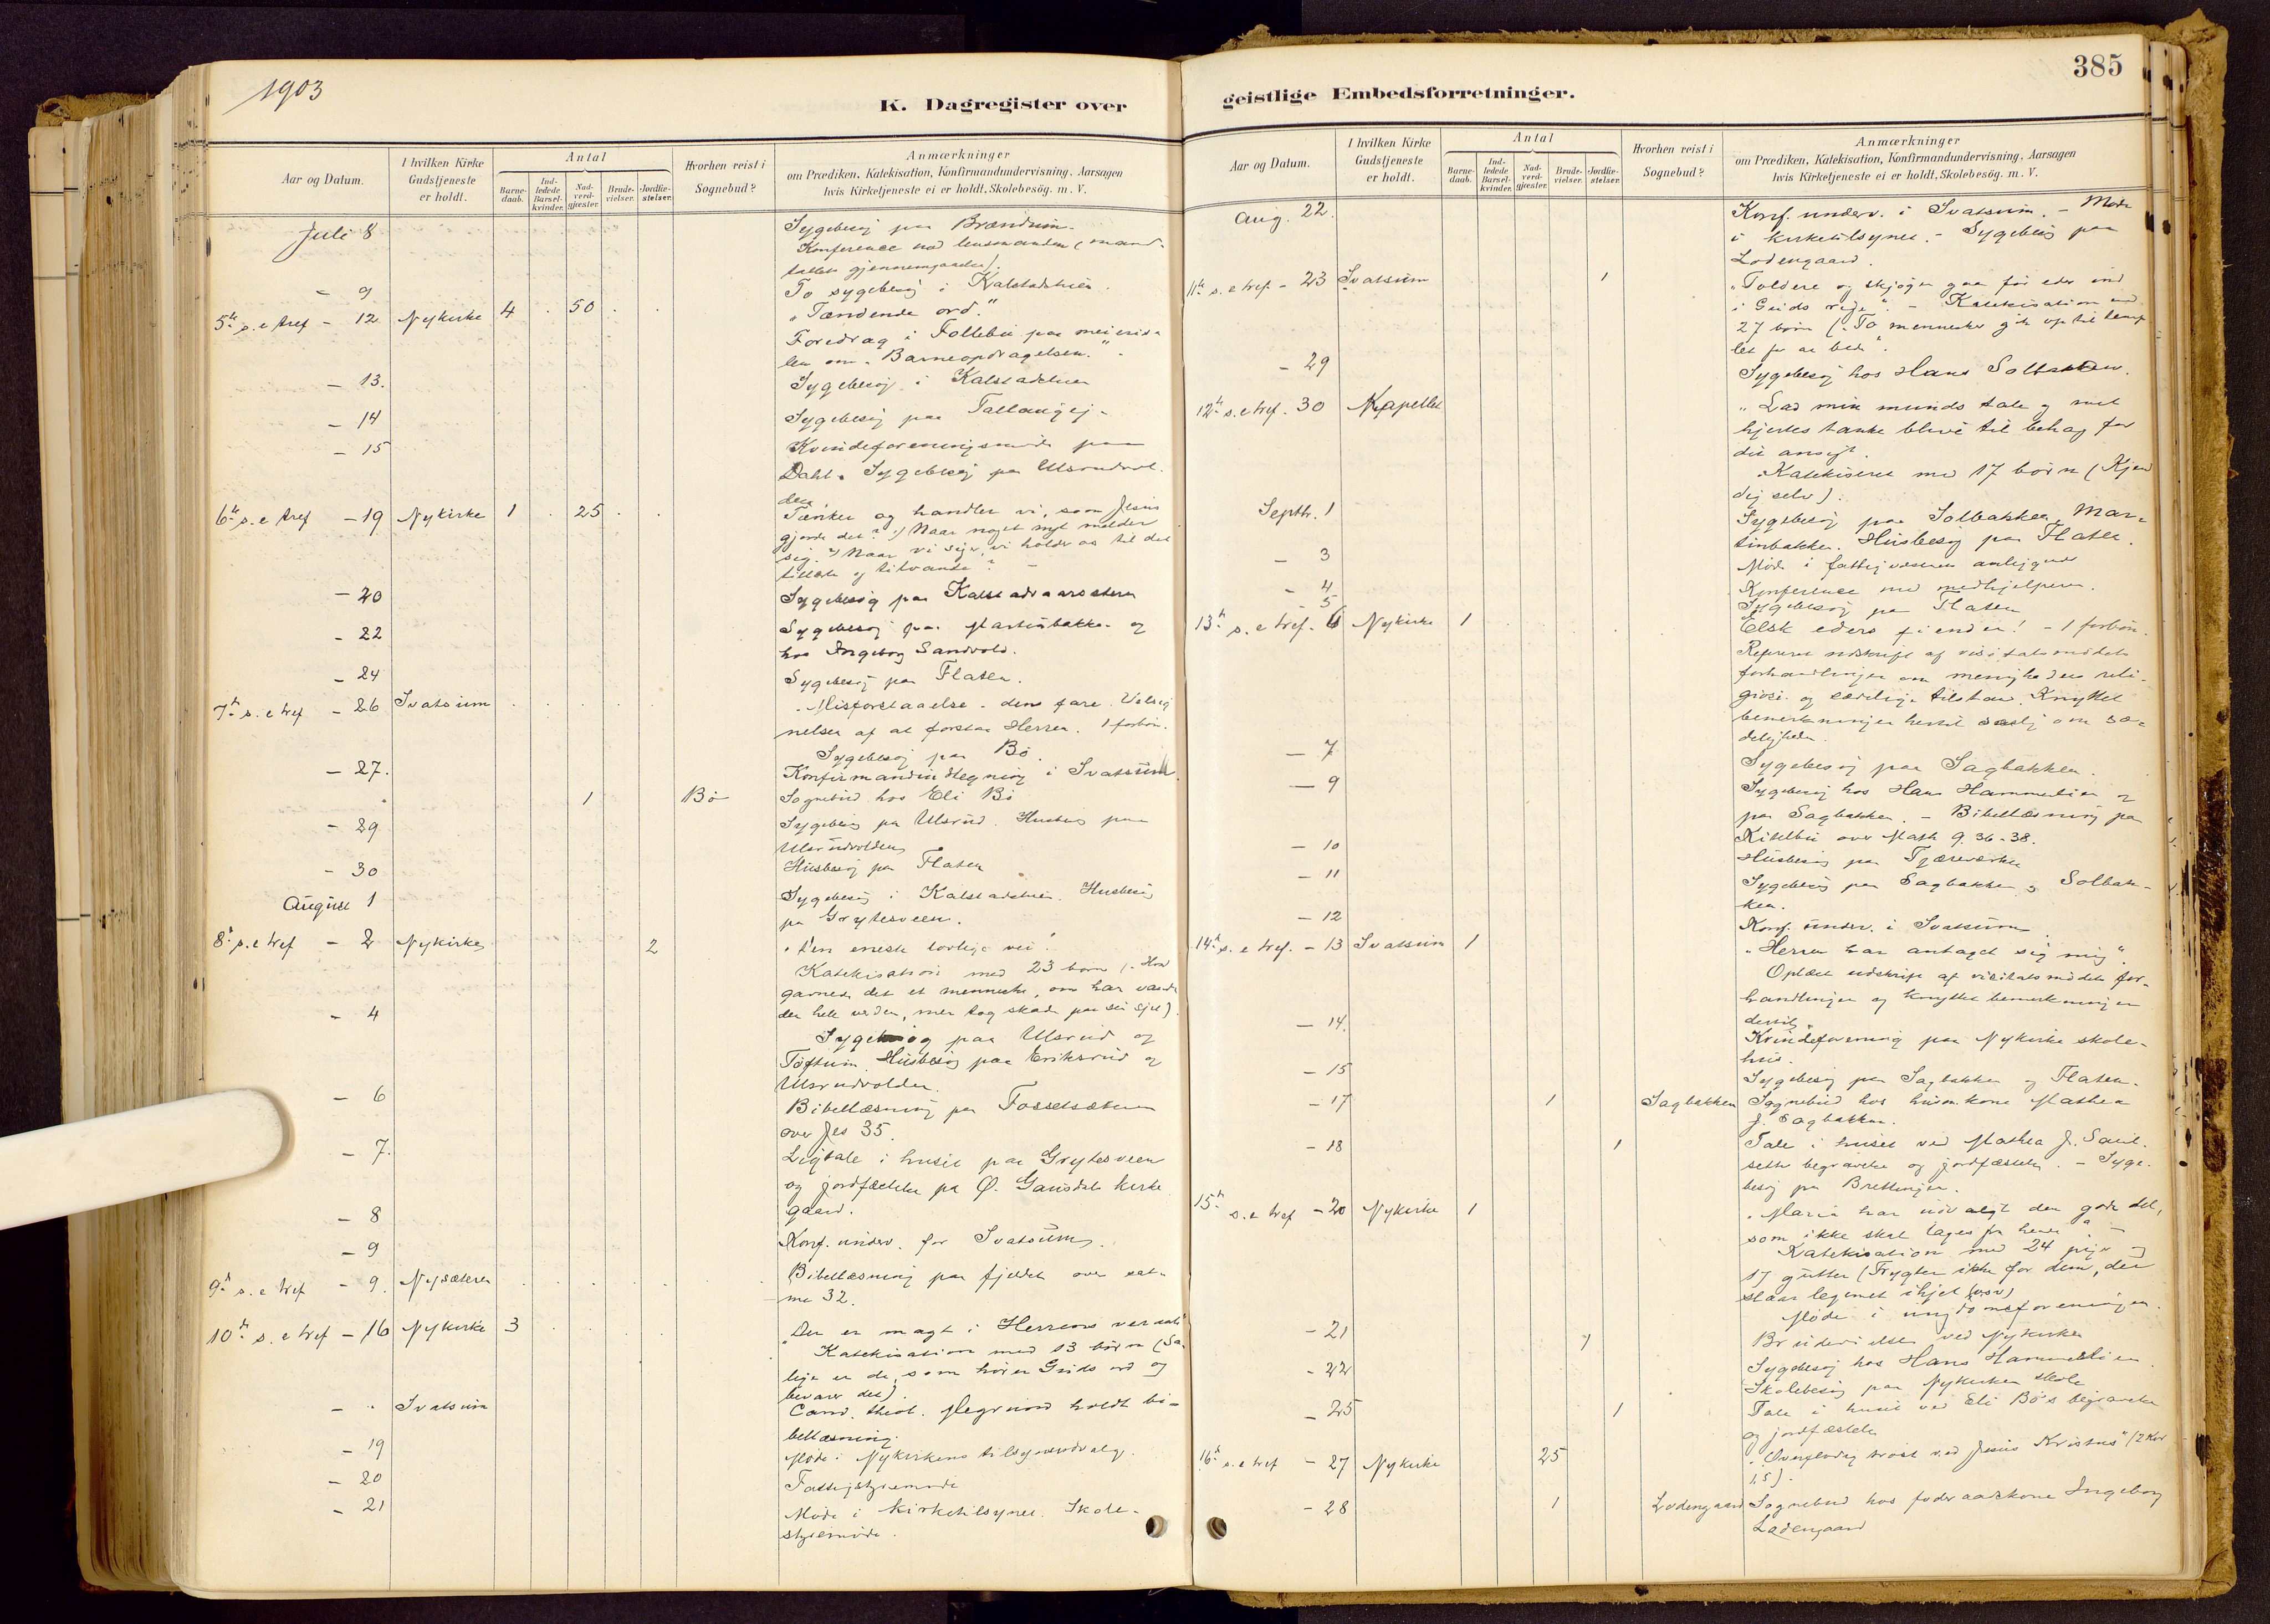 1903
K. Dagregister over
Aar og Datum.
I hvilken Kirke
Gudstjeneste
er holdt.
Antal
Barne-
daab.
Ind-
ledede
Barsel-
kvinder.
Nad-
verd-
gjæster.
Brude-
vielser.
Jordfæ-
stelser.
Hvorhen reist i
Sognebud?
Anmærkninger
om Prædiken, Katekisation, Konfirmandundervisning. Aarsagen
hvis Kirketjeneste ei er holdt. Skolebesög. m. V.
Juli 8 Sygebesøg paa Brændum.
Konference med lensmanden (mand-
tallet gjennemgaaet).
- 9 To sygebesøg i Kalstadstuen.
5te s. e tref - 12 Nykirke 4 . 50 . . „Tændende ord."
Foredrag i Follebu paa
om „Barneopdragelsen."
- 13. Sygebesøg i Kalstadstuen
- 14 Sygebesøg paa
- 15 Kvindeforeningsmøde paa
Dahl. Sygebesøg pa Ulsrudvol-
den.
6te s. e tref - 19 Nykirke 1 . 25 . . Tænker og handler vi, som Jesus
gjorde det? 1) Naar noget nyt melder
sig 2) Naar vi siger, vi holder os til det
og tilvante? -
- 20 Sygebesøg paa
- 22 Sygebesøg paa Martinbakke og
hos Ingeborg Sandvold.
- 24 Sygebesøg pa Flaten.
7de s. e tref - 26 Svatsum Misforstaaelse - dens fare. Velsig
nelsen af at forstaa Herren. 1 forbøn.
Sygebesøg paa Bø.
- 27. Konfirmandindtegning i Svatsum
1 Bø Sognebud hos Eli Bø
- 29 Sygebesøg pa Ulsrud. Husbesøg paa
Ulsrudvolden
- 30 Husbesøg pa Flaten
August 1 Sygebesøg i Kalstadstuen. Husbesøg
pa Grytesveen.
8de s. e tref - 2 Nykirke 2 „Den eneste lovlige vei".
Katekisation med 23 børn („Hvad
gavner det et menneske, om han vandt
den hele verden, men tog skade paa sin sjel)
- 4 Sygebesøg paa Ulsrud og
Toftum. Husbesøg paa Eriksrud og
Ulsrudvolden.
- 6 Bibellæsning pa Fossetsæteren
over Jes 35.
- 7. Ligtale i huset paa Grytesveen
og jordfæstelse pa Ø. Gausdals kirke
gaard.
- 8 Konf. underv. for Svatsum.
- 9
9de s. e tref - 9. Nysæteren Bibellæsning paa fjeldet over sal-
me 32.
10de s. e tref - 16 Nykirke 3 „Der er magt i Herrens
Katekisation med 13 børn (Sa-
lige er de, som hører Guds ord og
bevarer det).
- " Svatsum Cand. theol. Megrund holdt bi-
bellæsning.
- 19 Møde i Nykirkens tilsynsudvalg.
- 20 Fattigstyremøde
- 21 Møde i kirketilsynet. Skole-
styremøde.
geistlige Embedsforretninger.
385
Aar og Datum.
I hvilken Kirke
Gudstjeneste
er holdt.
Antal
Barne-
daab.
Ind-
ledede
Barsel-
kvinder.
Nad-
verd-
gjæster.
Brude-
vielser.
Jordfæ-
stelser.
Hvorhen reist i
Sognebud?
Anmærkninger
om Prædiken, Katekisation, Konfirmandundervisning. Aarsagen
hvis Kirketjeneste ei er holdt. Skolebesög. m. V.
Aug. 22. Konf. underv. i Svatsum. - Møde
i kirketilsynet. - Sygebesøg paa
Lodengaard.
11te s. e tref. - 23 Svatsum 1 „Toldere og skjøger gaa før eder ind
i Guds rige". - Katekisation med
27 børn („To mennesker gik op til temp-
let for at bede".
- 29 Sygebesøg hos Hans Solbakken.
12te s. e tref. 30 Kapellet „Lad min munds tale og mit
hjertes tanke blive til behag for
dit ansigt.
Katekiseret med 17 børn (Kjend
dig selv).
Septbr. 1 Sygebesøg paa Solbakken, Mar-
tinbakke. Husbesøg pa Flaten.
- 3 Møde i fattigvæsenets anliggende
- 4 Konference med medhjelperen.
5 Sygebesøg pa Flaten
13de s. e tref. - 6 Nykirke 1 Elsk eders fiender! - 1 forbøn.
udskrift af visitatsmødets
forhandlinger om menighedens reli-
giøse og sædelige tilstand. Knyttet
bemerkninger hertil særlig om sæ-
deligheden.
- 7 Sygebesøg paa Sagbakken.
- 9 Sygebesøg hos Hans Hammerlien og
pa Sagbakken. - Bibellæsning pa
Kittelbu over Math 9. 36-38.
- 10 Husbesøg pa Tjæreværket
- 11 Sygebesøg pa Sagbakken og Solbak-
ken.
- 12 Konf. underv. i Svatsum
14de s. e tref. - 13 Svatsum 1 „Herren har antaget sig mig".
Oplæst udskrift af visitatsmødets for-
handlinger og knyttet bemerkninger
dertil.
- 14. Kvindeforening paa Nykirke skole-
hus.
- 15 Sygebesøg pa Sagbakken og Flaten.
- 17 1 Sagbakken Sognebud hos husm.kone Mathea
J. Sagbakken.
- 18 1 Tale i huset ved Mathea J.
begravelse og jordfæstelse. - Syge-
besøg pa Brettingen.
15de s. e tref - 20 Nykirke 1 „Maria har udvalgt den gode del,
som ikke skal tages fra hende". -
Katekisation med 24 piger og
17 gutter (Frygter ikke for dem, der
slaar legemet ihjel (osv)
Møde i ungdomsforeningen.
- 21 1 Brudevielse ved Nykirken
- 22 Sygebesøg hos Hans Hammerlien.
Skolebesøg paa Nykirken skole
- 25 1 Tale i huset ved Eli Bø's begravelse
og jordfæstelse
16de s. e tref - 27 Nykirke 25 „Overflødig trøst ved Jesus Kristus" (2 Kor
1,5).
- 28 1 Lodengaard Sognebud hos føderaadskone Ingeborg
Lodengaard